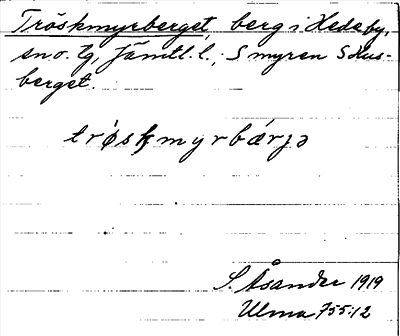 Tröskmyrberget, berg i Hedeby,
sn o. tg, Jämtl. l.; S myren S Hus-
berget.
tröskmyrbárjə
S. Åsander 1919
Ulma 755:12